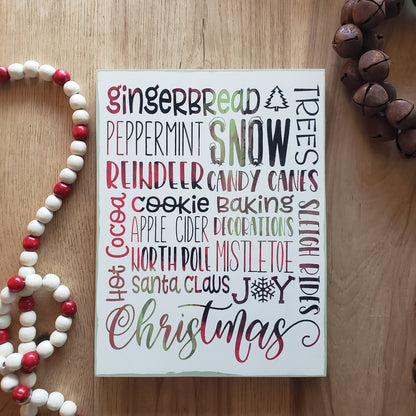 gingerbread
TREES
PEPPERMINT SNOW
REINDEER CANDY CANES
Hot Cocoa
cookie Baking
APPLE CIDER DECORATIONS
SLEIGH RIDES
NORTH POLE MISTLETOE
santa claus JOY
Christmas